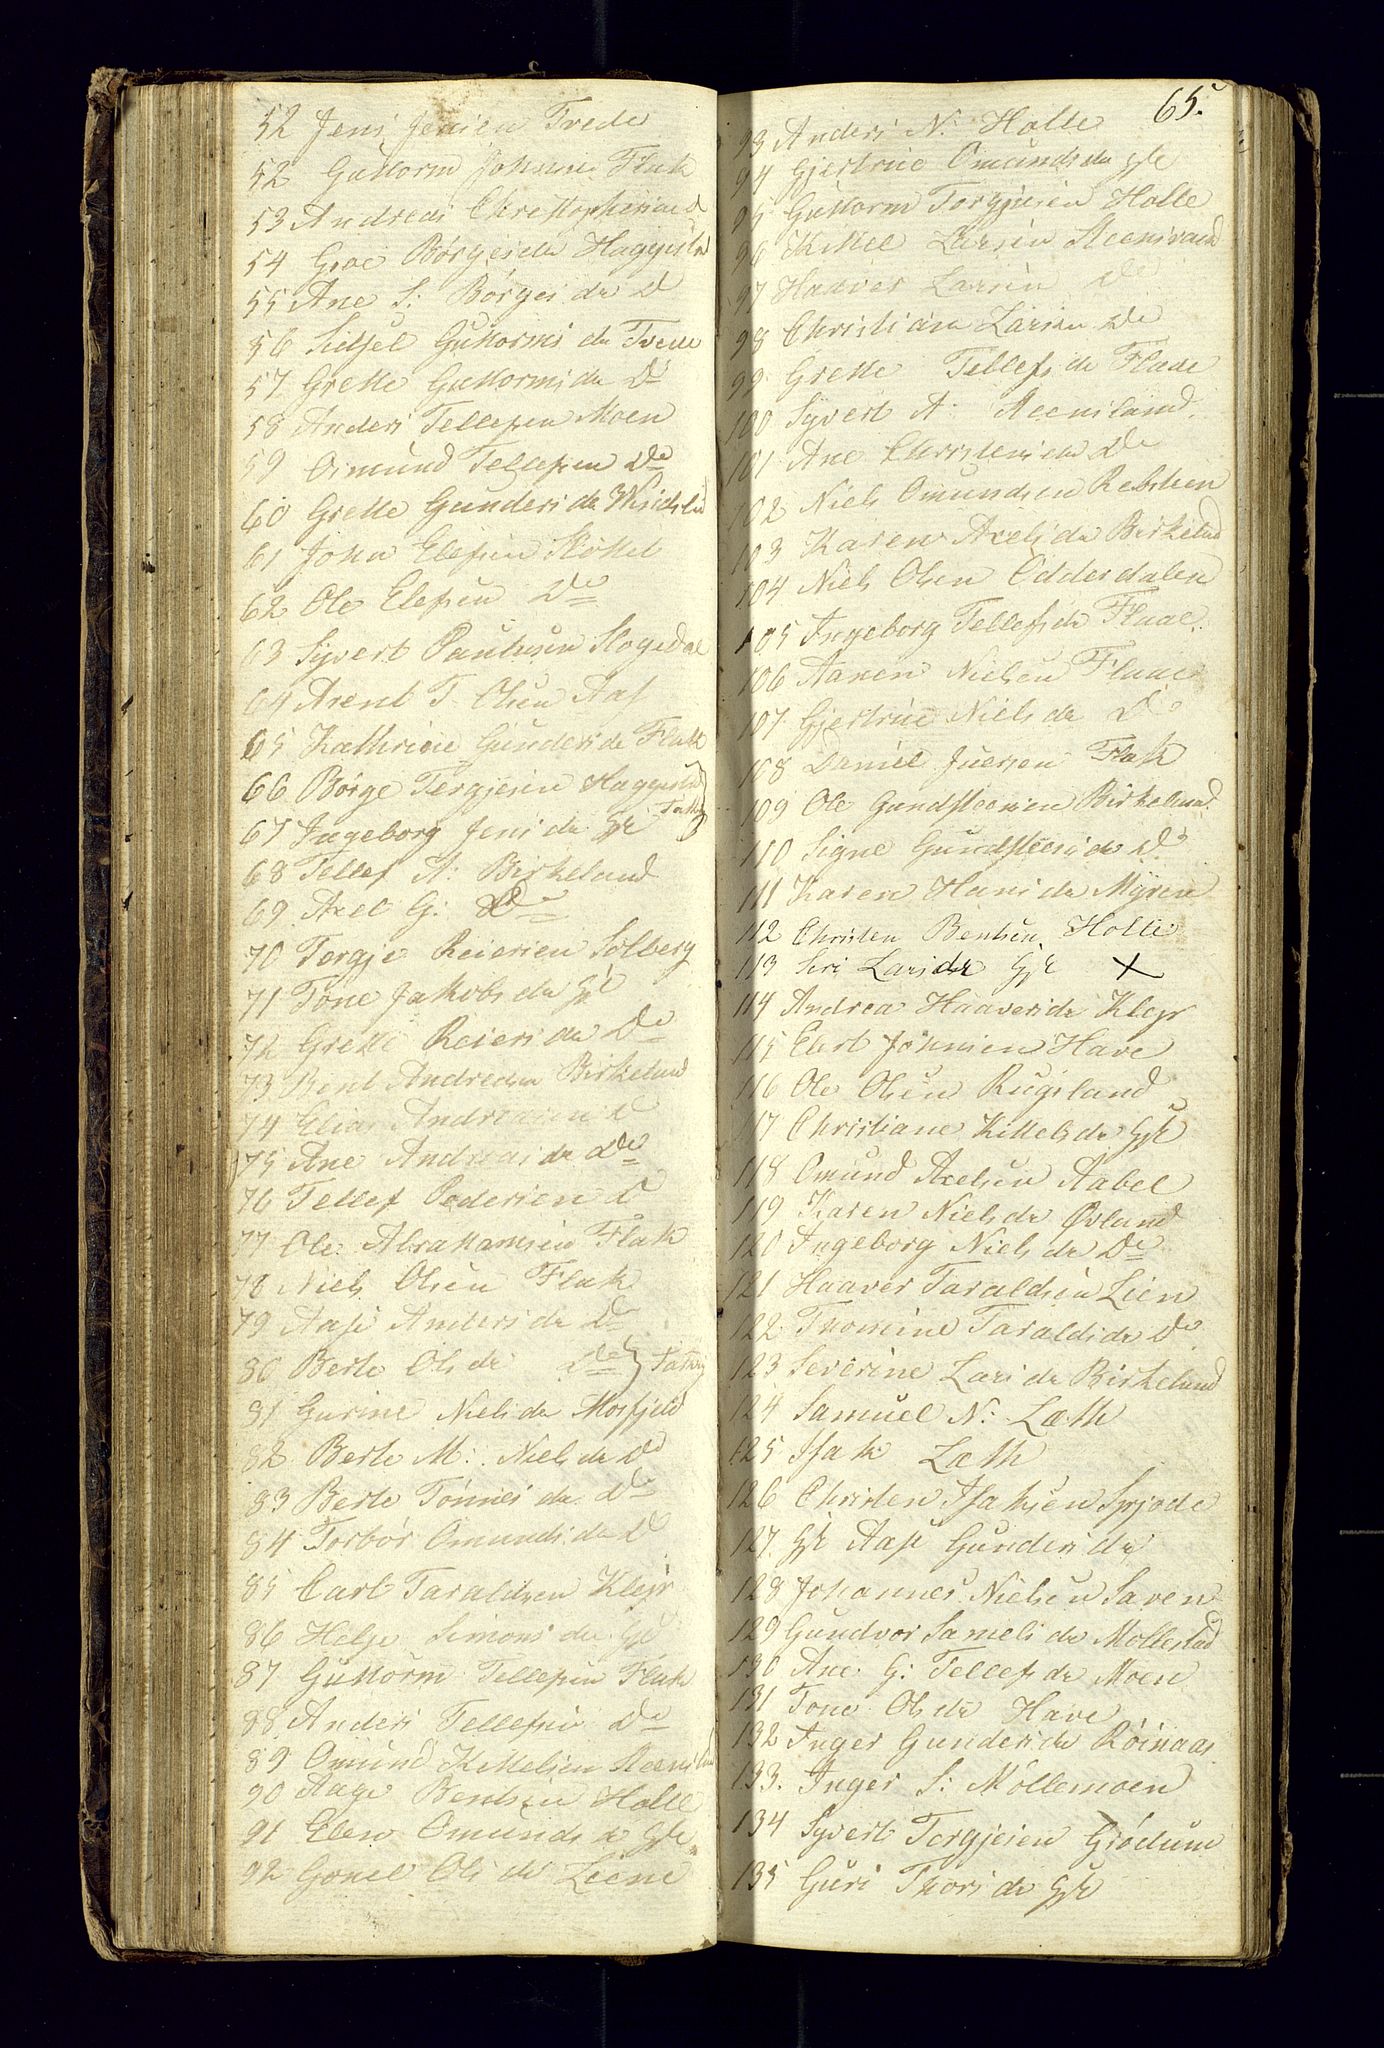 52 Jens Jensen Trede
52 Guttorm Johnsen Flak
53 Andreas Christophersen D
54 Groe Børgesdr Haggestad
55 Ane S: Børges dr D
56 Sidsel Guttorms dr Trede
57 Grette Guttorms dr Do
58 Anders Tellefsen Moen
59 Osmund Tellefsen Do
60 Grette Gunders dr Widsted
61 John Elefsen Skottet
62 Ole Elefsen Do
63 Syvert Paulsen Slogedal
64 Arent T. Olsen Aas
65 Kathrine Gunders dr Flak
66 Børge Tergjesen Haggestad
67 Ingeborg Jens dr Gje
68 Tellef A: Birkeland
69 Axel G: Do
70 Torgje Reiersen Solberg
71 Tone Jakobs dr Gje
72 Grette Reiers dr Do
73 Bent Andresen Birkeland
74 Elias Andreasen D
75 Ane Andreas dr Do
76 Tellef Pedersen D
77 Ole Abrahamsen Flak
78 Niels Olsen Flak
79 Aase Anders dr Do
80 Berte Ols dr Do
81 Gurine Niels dr Mosfjeld
82 Berte M: Niels dr Do
83 Berte Tønnes dr Do
84 Torbor Omunds dr D
85 Carl Taraldsen Klepr
86 Helje Simons dr Gje
87 Guttorm Tellefsen Flak
88 Anders Tellefsen Do
89 Omund Kittelsen Steensland
90 Aage Bentsen Holte
91 Elen Omunds dr Gje
92 Gonel Ols dr Liene
65.
93 Anders N: Holte
94 Gjertrue Omunds dr Gje
95 Guttorm Torgjusen Holte
96 Kittel Larsen Steensvand
97 Haaver Larsen Do
98 Christian Larsen Do
99 Grette Tellefs dr Flaae
100 Syvert A: Steensland.
101 Ane Christens dr Do
102 Niels Omundsen Rebsteen
103 Karen Axels dr Birkeland
104 Niels Olsen Odderdalen
105 Ingeborg Tellefs dr Flaae.
106 Aanen Nielsen Flaae
107 Gjertrue Niels dr Do
108 Daniel Juersen Flak
109 Ole Gundsteensen Birkeland.
110 Signe Gundsteens dr Do
111 Karen Hans dr Myren
112 Christen Bentsen Holte
113 Siri Lars dr Gje X
114 Andrea Haavers dr Klepr
115 Elert Johnsen Have
116 Ole Olsen Rugsland
117 Christiane Kittels dr Gje
118 Omund Axelsen Aabel
119 Karen Niels dr Øvland
120 Ingeborg Niels dr Do
121 Haaver Taraldsen Lien
122 Thomine Taralds dr Do
123 Severine Lars dr Birkeland
124 Samuel N: Læth
125 Isak Læth
126 Christen Isaksen Spjode
127. Gje Aase Gunders dr
128 Johannes Nielsen Saven
129 Gundvor Samels dr Mollestad
130 Ane G: Tellefs dr Moen
131 Tone Ols dr Have
132 Inger Gunders dr Røinaas
133. Inger S: Møllemoen
134 Syvert Torgjesen Grødum
135 Guri Thors dr Gje